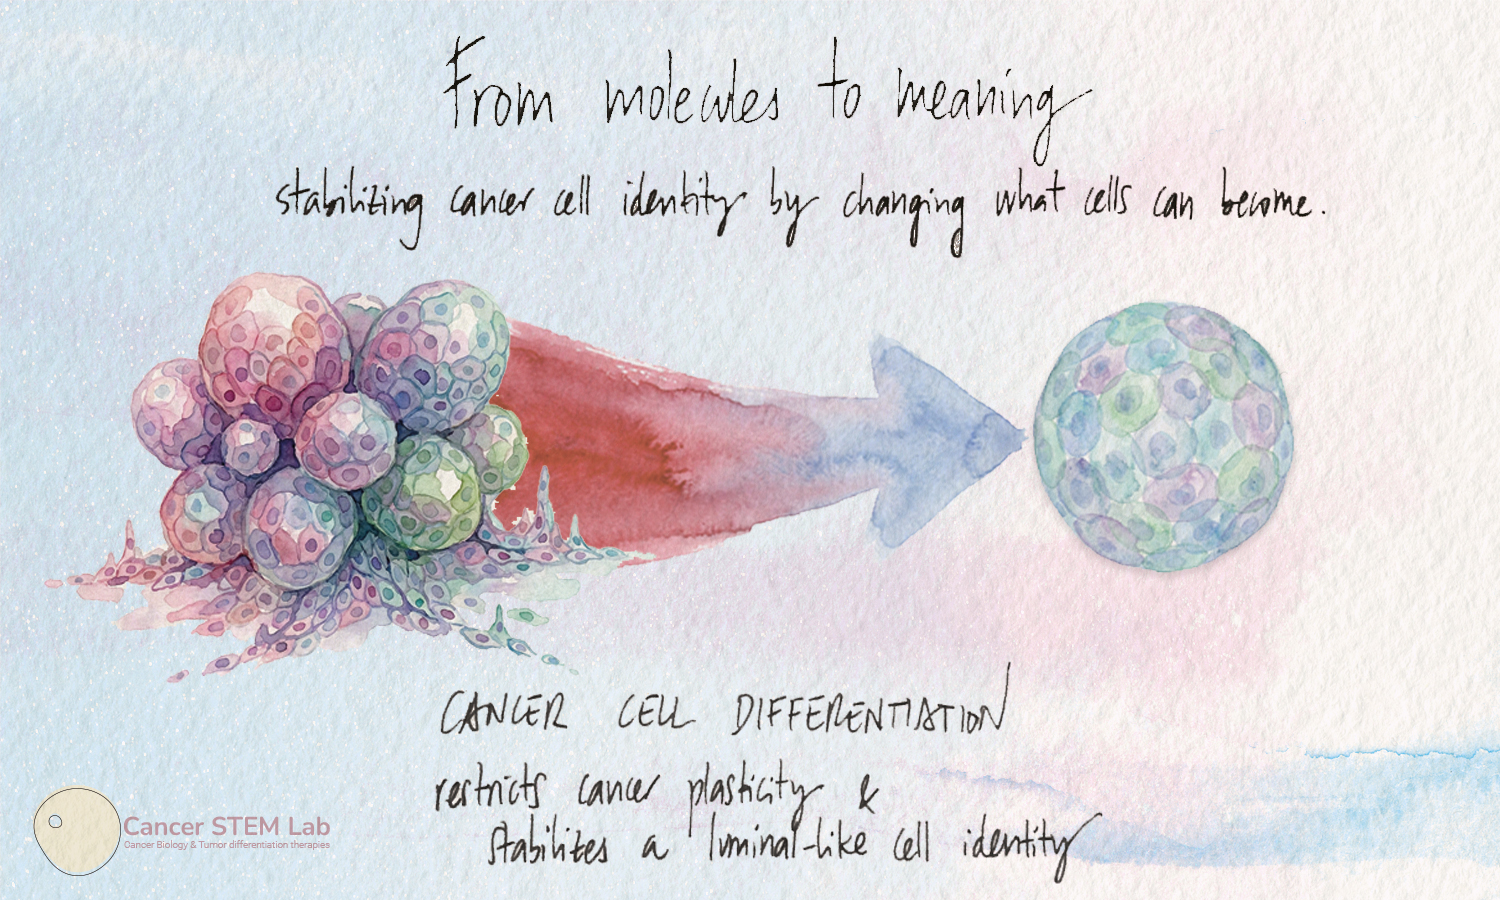 From molecules to meaning
stabilizing cancer cell identity by changing what cells can become.
CANCER CELL DIFFERENTIATION
restricts cancer plasticity &
stabilizes a luminal-like cell identity
Cancer STEM Lab
Cancer Biology & Tumor differentiation therapies